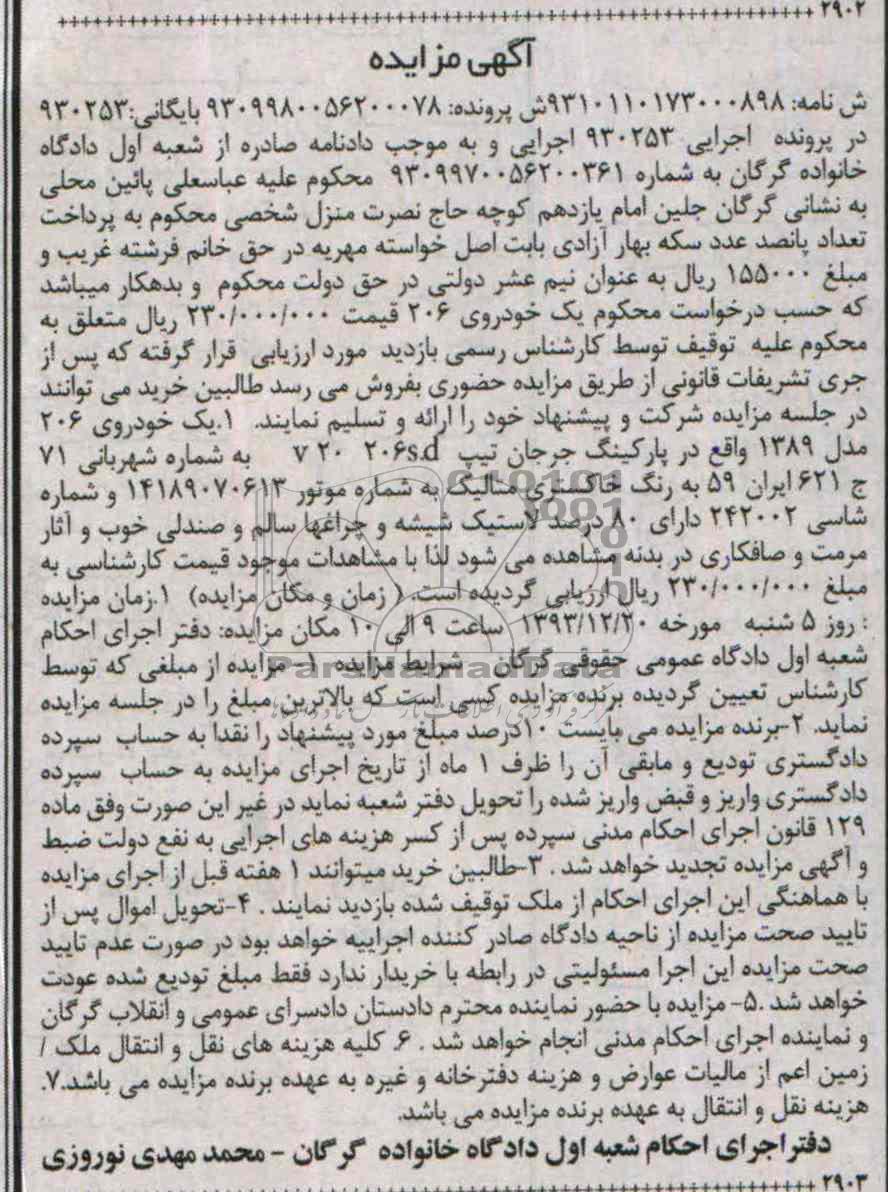 ۲۹۰۲
آگهی مزایده
ش نامه: ۹۳۱۰۱۱۰۱۷۳۰۰۰۸۹۸ش پرونده: ۹۳۰۹۹۸۰۰۵۶۲۰۰۰۷۸ بایگانی:۹۳۰۲۵۳
در پرونده اجرایی ۹۳۰۲۵۳ اجرایی و به موجب دادنامه صادره از شعبه اول دادگاه
خانواده گرگان به شماره ۹۳۰۹۹۷۰۰۵۶۲۰۰۳۶۱ محکوم علیه عباسعلی پائین محلی
به نشانی گرگان جلین امام یازدهم کوچه حاج نصرت منزل شخصی محکوم به پرداخت
تعداد پانصد عدد سکه بهار آزادی بابت اصل خواسته مهریه در حق خانم فرشته غریب و
مبلغ ۱۵۵۰۰۰ ریال به عنوان نیم عشر دولتی در حق دولت محکوم و بدهکار میباشد
که حسب درخواست محکوم یک خودروی ۲۰۶ قیمت ۲۳۰/۰۰۰/۰۰۰ ریال متعلق به
محکوم علیه توقیف توسط کارشناس رسمی بازدید مورد ارزیابی قرار گرفته که پس از
جری تشریفات قانونی از طریق مزایده حضوری بفروش می رسد طالبین خرید می توانند
در جلسه مزایده شرکت و پیشنهاد خود را ارائه و تسلیم نمایند. ۱.یک خودروی ۲۰۶
مدل ۱۳۸۹ واقع در پارکینگ جرجان تیپ ۲۰۶s.d ۷ ۲۰ به شماره شهربانی ۷۱
ج ۶۲۱ ایران ۵۹ به رنگ خاکستری متالیک به شماره موتور ۱۴۱۸۹۰۷۰۶۱۳ و شماره
شاسی ۲۴۲۰۰۲ دارای ۸۰ درصد لاستیک شیشه و چراغها سالم و صندلی خوب و آثار
مرمت و صافکاری در بدنه مشاهده می شود لذا با مشاهدات موجود قیمت کارشناسی به
مبلغ ۲۳۰/۰۰۰/۰۰۰ ریال ارزیابی گردیده است. ( زمان و مکان مزایده) ۱.زمان مزایده
: روز ۵ شنبه مورخه ۱۳۹۳/۱۲/۲۰ ساعت ۹ الی ۱۰ مکان مزایده: دفتر اجرای احکام
شعبه اول دادگاه عمومی حقوقی گرگان شرایط مزایده ۱- مزایده از مبلغی که توسط
کارشناس تعیین گردیده برنده مزایده کسی است که بالاترین مبلغ را در جلسه مزایده
نماید. ۲-برنده مزایده می بایست ۱۰درصد مبلغ مورد پیشنهاد را نقدا به حساب سپرده
دادگستری تودیع و مابقی آن را ظرف ۱ ماه از تاریخ اجرای مزایده به حساب سپرده
دادگستری واریز و قبض واریز شده را تحویل دفتر شعبه نماید در غیر این صورت وفق ماده
۱۲۹ قانون اجرای احکام مدنی سپرده پس از کسر هزینه های اجرایی به نفع دولت ضبط
و آگهی مزایده تجدید خواهد شد . ۳-طالبین خرید میتوانند ۱ هفته قبل از اجرای مزایده
با هماهنگی این اجرای احکام از ملک توقیف شده بازدید نمایند . ۴-تحویل اموال پس از
تایید صحت مزایده از ناحیه دادگاه صادر کننده اجراییه خواهد بود در صورت عدم تایید
صحت مزایده این اجرا مسئولیتی در رابطه با خریدار ندارد فقط مبلغ تودیع شده عودت
خواهد شد .۵- مزایده با حضور نماینده محترم دادستان دادسرای عمومی و انقلاب گرگان
و نماینده اجرای احکام مدنی انجام خواهد شد . ۶. کلیه هزینه های نقل و انتقال ملک /
زمین اعم از مالیات عوارض و هزینه دفترخانه و غیره به عهده برنده مزایده می باشد.۷.
هزینه نقل و انتقال به عهده برنده مزایده می باشد.
دفتر اجرای احکام شعبه اول دادگاه خانواده گرگان - محمد مهدی نوروزی
۲۹۰۳
ParsNamadData